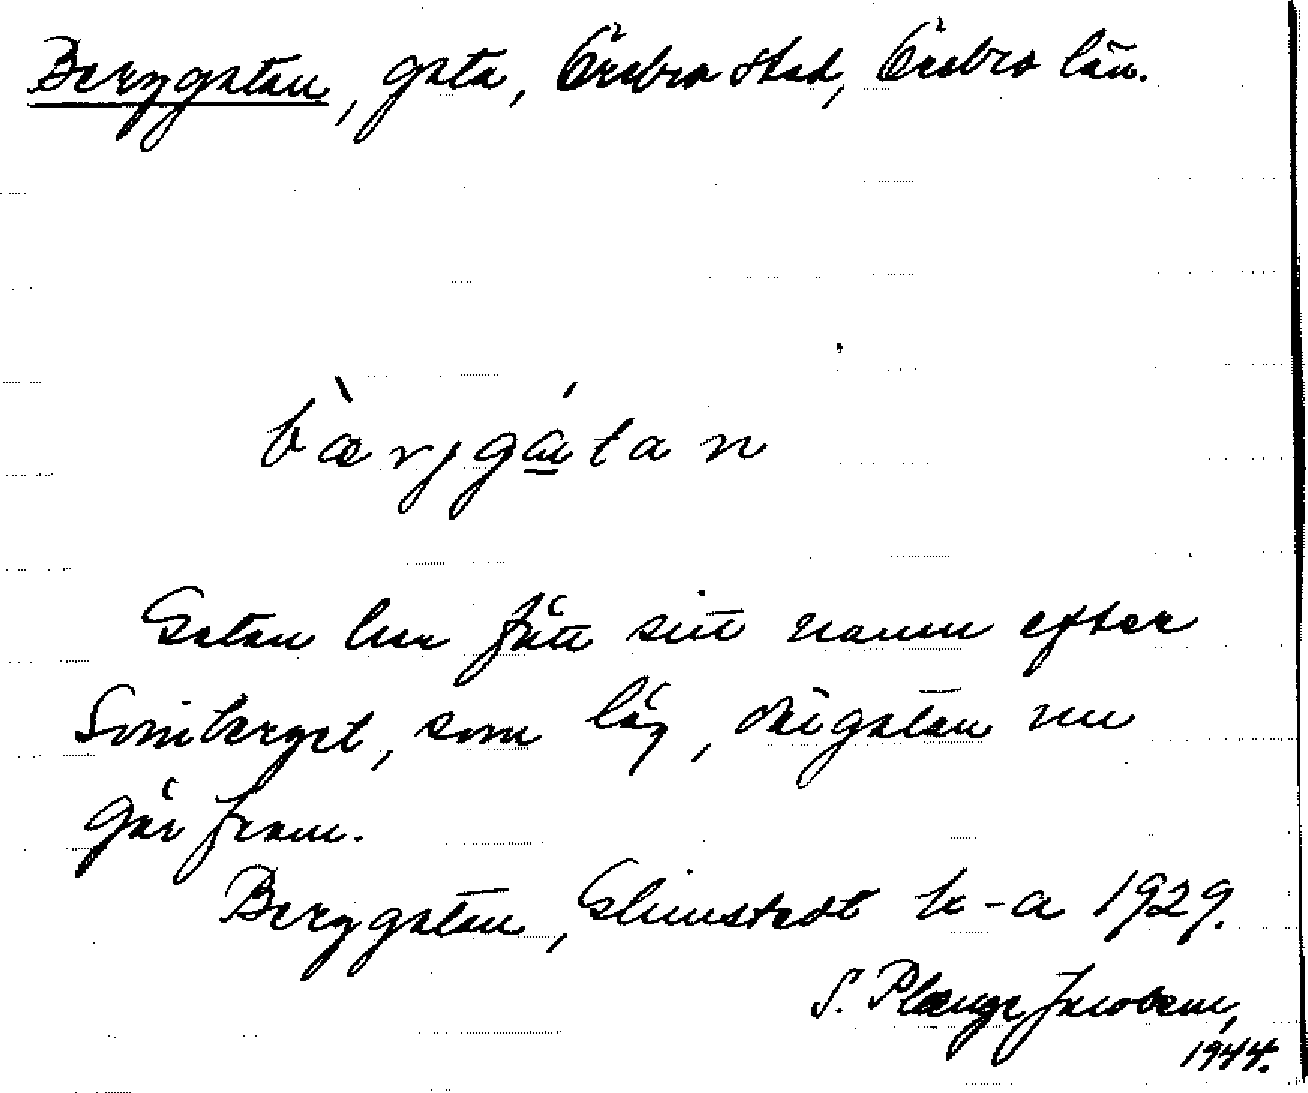 Berggatan, gata, Örebro stad, Örebro län.
bàrjgátan
Gatan har fått sitt namn efter
som låg, där gatan nu
går fram.
Berggatan, Elmstedt k-a 1929.
S. Plænge Jacobson,
1944.